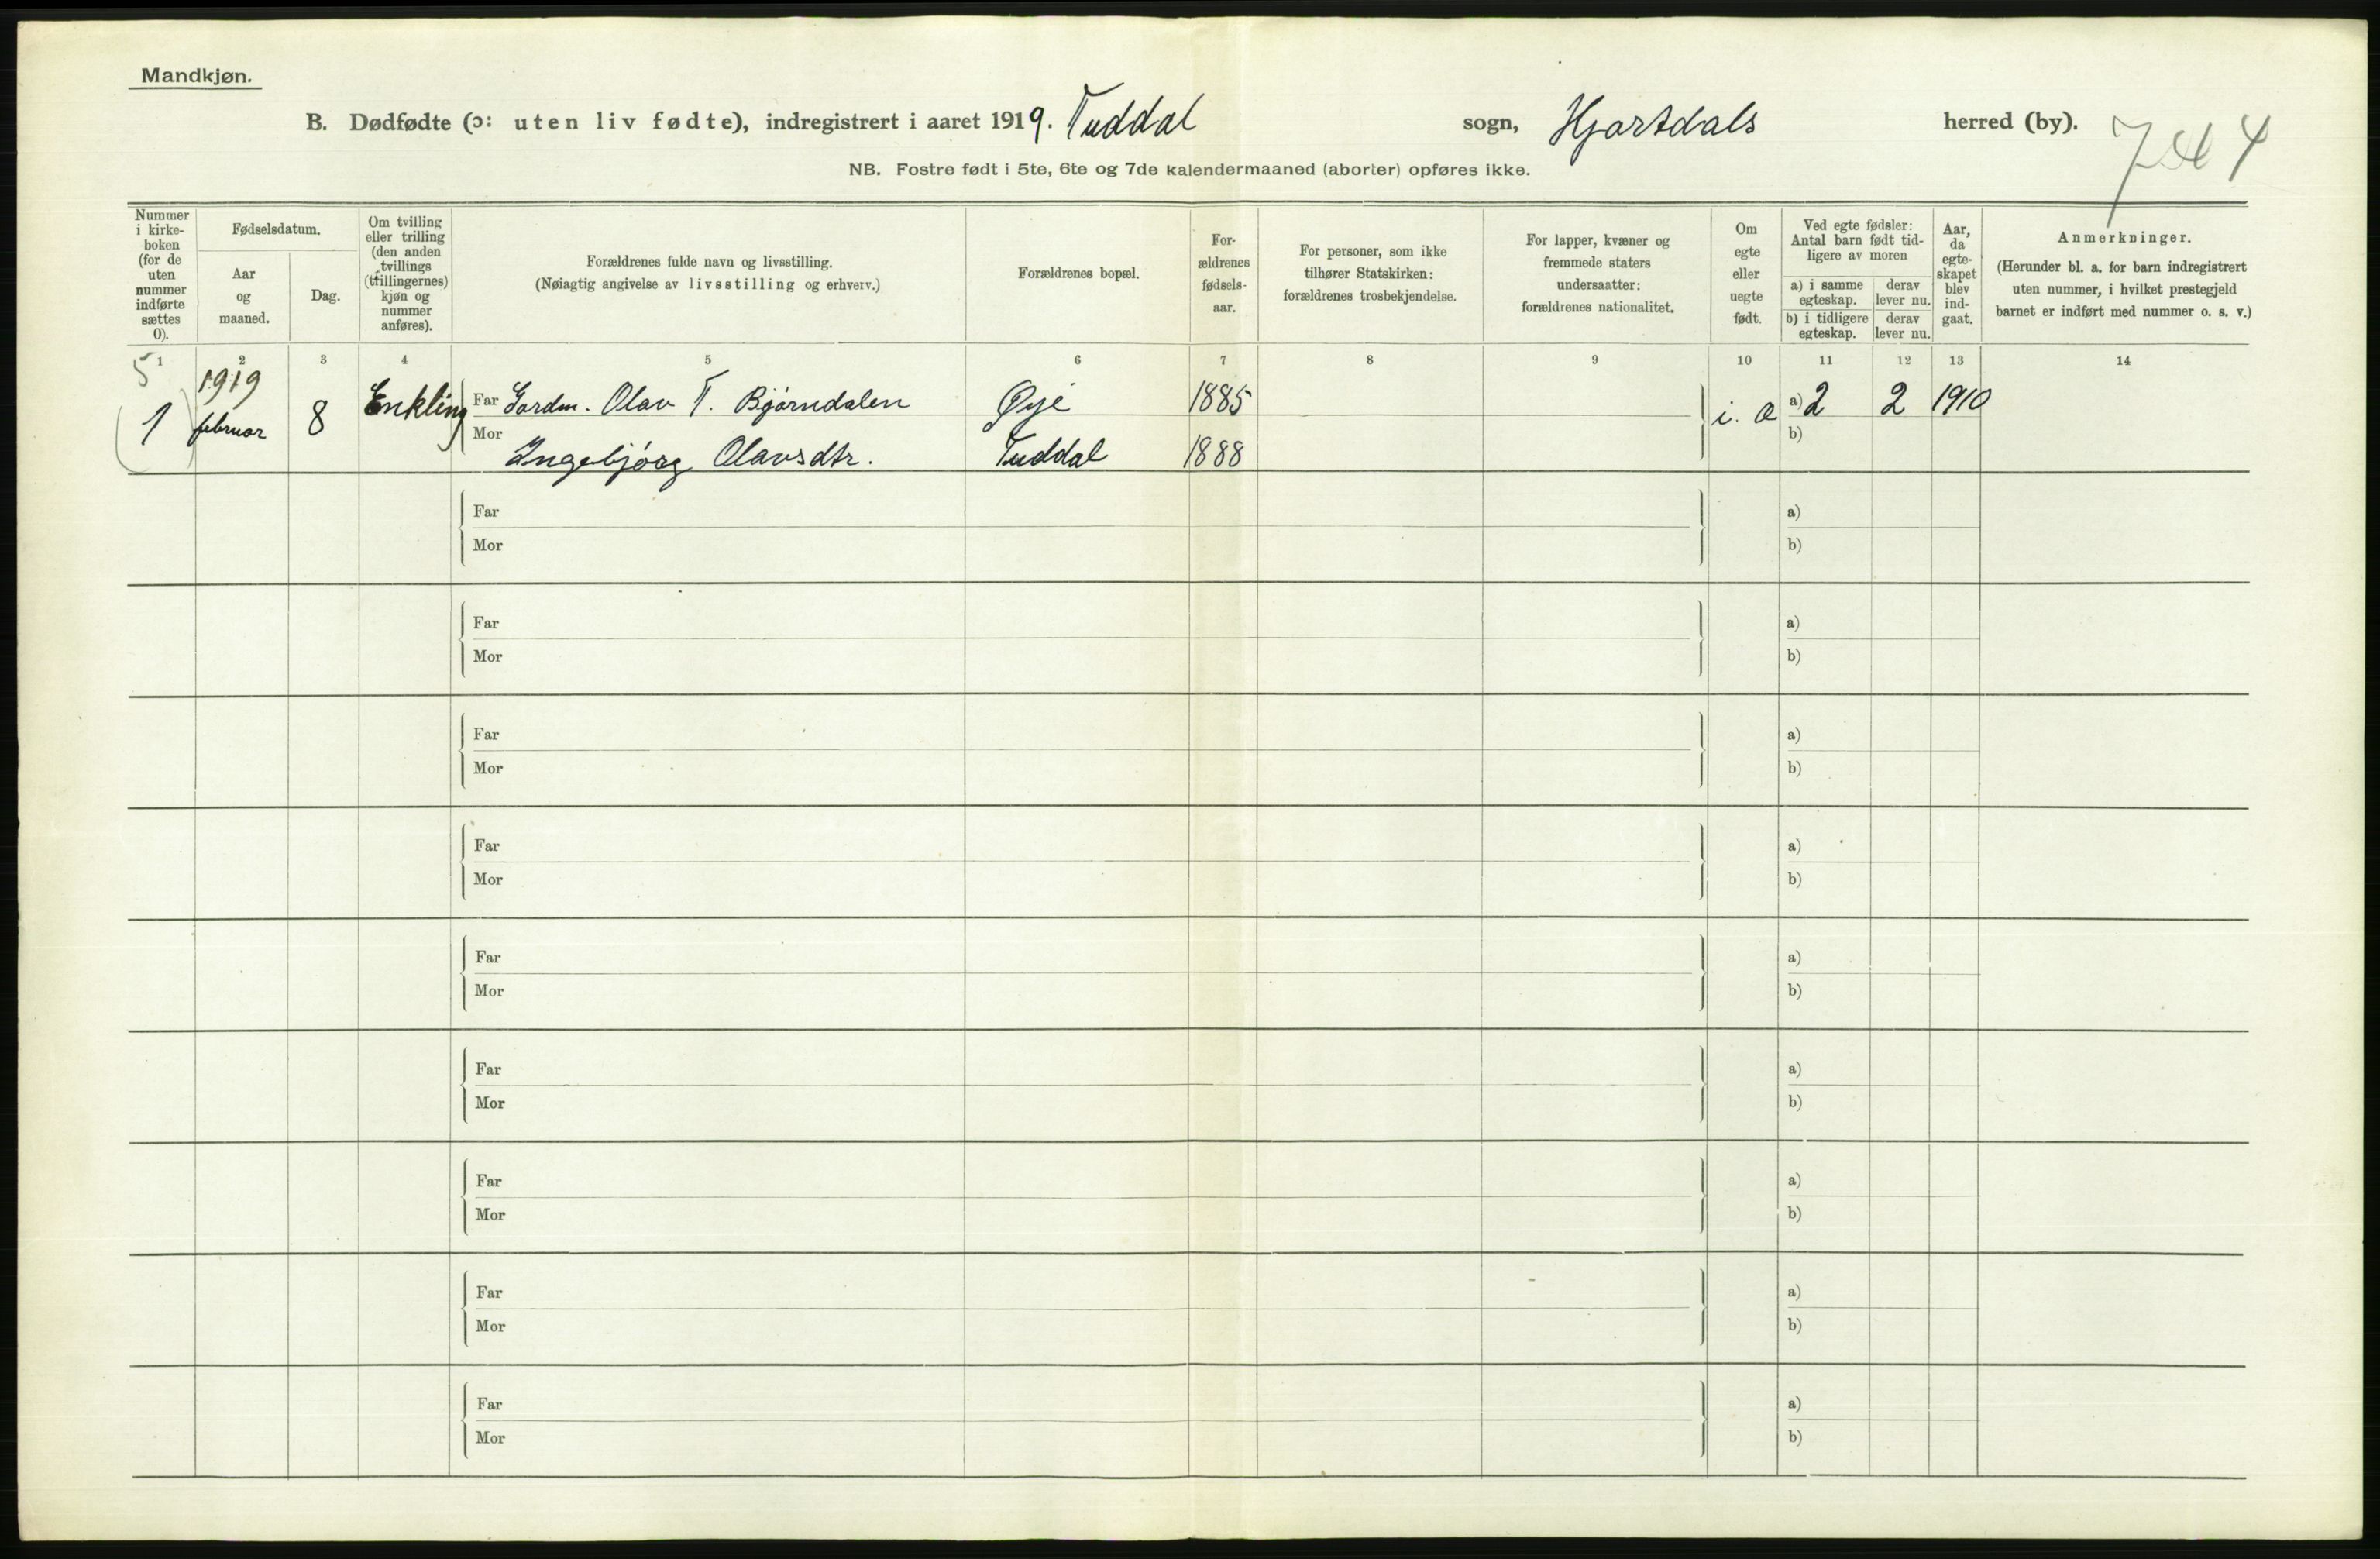 Mandkjøn.
B. Dødfødte (ɔ: uten liv fødte), indregistrert i aaret 1919. Tuddal sogn, Hjartdals herred (by).
744
NB. Fostre født i 5te, 6te og 7de kalendermaaned (aborter) opføres ikke.
Nummer i kirke-boken (for de uten nummer indførte sættes 0).
Fødselsdatum.
Aar og maaned.
Dag.
Om tvilling eller trilling (den anden tvillings (trillingernes) kjøn og nummer anføres).
Forældrenes fulde navn og livsstilling.
(Nøiagtig angivelse av livsstilling og erhverv.)
Forældrenes bopæl.
For-ældrenes fødsels-aar.
For personer, som ikke tilhører Statskirken: forældrenes trosbekjendelse.
For lapper, kvæner og fremmede staters undersaatter: forældrenes nationalitet.
Om egte eller uegte født.
Ved egte fødsler: Antal barn født tid-ligere av moren
a) i samme egteskap.
derav lever nu.
b) i tidligere egteskap.
derav lever nu.
Aar, da egte-skapet blev ind-gaat.
Anmerkninger.
(Herunder bl. a. for barn indregistrert uten nummer, i hvilket prestegjeld barnet er indført med nummer o. s. v.)
1 2 3 4 5 6 7 8 9 10 11 12 13 14
5
1919
1 februar 8 Enkling Far Gardm. Olav T. Bjørndalen Øye 1885 i. a a) 2 2 1910
Mor Ingebjørg Olavsdtr. Tuddal 1888 b)
Far a)
Mor b)
Far a)
Mor b)
Far a)
Mor b)
Far a)
Mor b)
Far a)
Mor b)
Far a)
Mor b)
Far a)
Mor b)
Far a)
Mor b)
Far a)
Mor b)